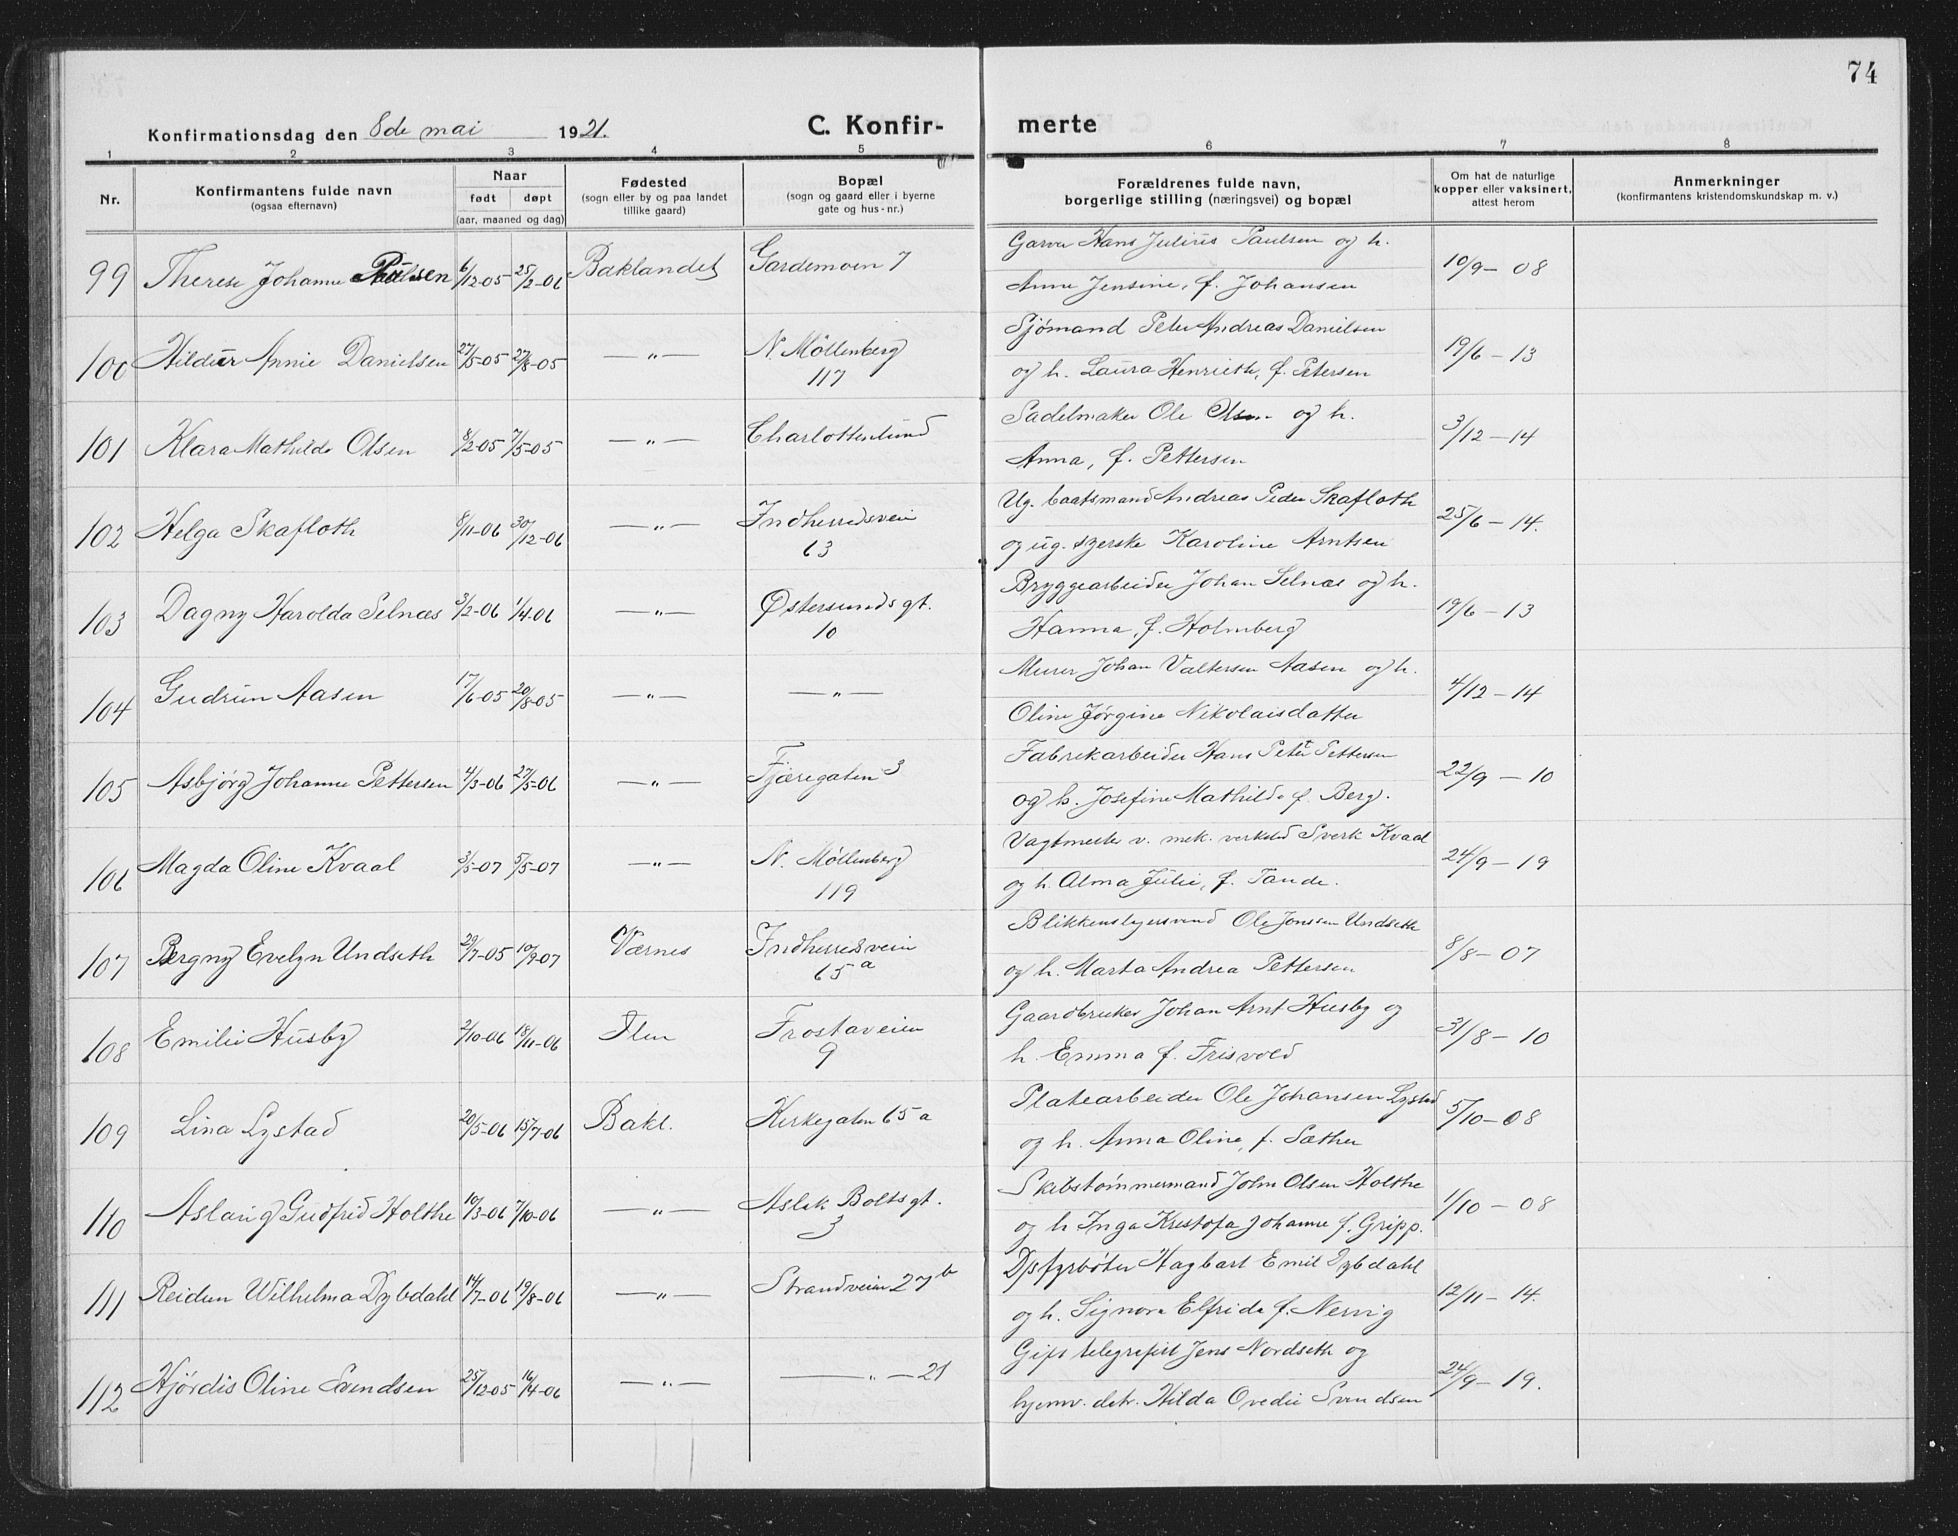 74
Konfirmationsdag den 8de mai 1921.
C. Konfir-
merte
1 2 3 4 5 6 7 8
Nr.
Konfirmantens fulde navn
(ogsaa efternavn)
Naar
født døpt
(aar, maaned og dag)
Fødested
(sogn eller by og paa landet
tillike gaard)
Bopæl
(sogn og gaard eller i byerne
gate og hus-nr.)
Forældrenes fulde navn,
borgerlige stilling (næringsvei) og bopæl
Om hat de naturlige
kopper eller vaksinert,
attest herom
Anmerkninger
(konfirmantens kristendomskundskap m. v.)
99 Therese Johanne Paulsen 6/12-05 25/2-06 Baklandet Gardemoen 7
Garver Hans Julius Paulsen og h.
Anne Jensine, f. Johansen
10/9-08
100 Hildur Annie Danielsen 27/5-05 27/8-05 —"— N. Møllenberg
117
Sjømand Peter Andreas Danielsen
og h. Laura Henriette, f. Petersen
19/6-13
101 Klara Mathilde Olsen 8/2-05 7/5-05 —"— Charlottenlund
Sadelmaker Ole Olsen og h.
Anna, f. Pettersen
3/12-14
102 Helga Skafloth 8/11-06 30/12-06 —"— Indherredsveien
63
Ug. baatsmand Andreas Peder Skafloth
og ug. syerske Karoline Arntsen
25/6-14.
103 Dagny Harolda Selnæs 3/2-06 1/4-06 —"— Østersundsgt.
10
Bryggearbeider Johan Selnæs og h.
Hanna, f. Holmberg
19/6-13
104 Gudrun Aasen 17/6-05 20/8-05 —"— —"—
Murer Johan Valtersen Aasen og h.
Oline Jørgine Nikolaisdatter
4/12-14
105 Asbjørg Johanne Pettersen 4/3-06 27/5-06 —"— Fjæregaten 3
Fabrikarbeider Hans Peter Pettersen
og h. Josefine Mathilde f. Berg.
22/9-10
106 Magda Oline Kvaal 3/5-07 5/5-07 —"— N. Møllenberg
119
Vagtmester v. mek. verksted Sverk Kvaal
og h. Alma Julie, f. Tande.
24/9-19
107 Bergny Evelyn Undseth 29/7-05 10/9-07 Værnes Indherredsveien
65a
Blikkenslagersvend Ole Jonssen Undseth
og h. Marta Andrea Pettersen
8/8-07
108 Emilie Husby 2/10-06 18/11-06 Ilen Frostaveien
9
Gaardbruker Johan Arnt Husby og
h. Emma f. Frisvold
31/8-10
109 Lina Lystad 20/5-06 15/7-06 Bakl. Kirkegaten 65a
Platearbeider Ole Johansen Lystad
og h. Anna Oline, f. Sæther
5/10-08
110 Aslaug Gudfrid Holthe 10/3-06 7/10-06 —"— Aslak Boltsgt.
3
Skibstømmermand John Olsen Holthe
og h Inga Kristofa Johanne f. Gripp.
1/10-08
111 Reidun Wilhelma Dybdahl 14/7-06 19/8-06 —"— Strandveien 27b
Ds fyrbøter Hagbart Emil Dybdahl
og h. Signora Elfrida f. Nervig
12/11-14.
112 Hjørdis Oline Svendsen 25/12-05 16/4-06 —"— —"— 21
Gift telegrafist Jens Nordseth og
hjemv. datr. Hilda Ovedie Svendsen
24/9-19.